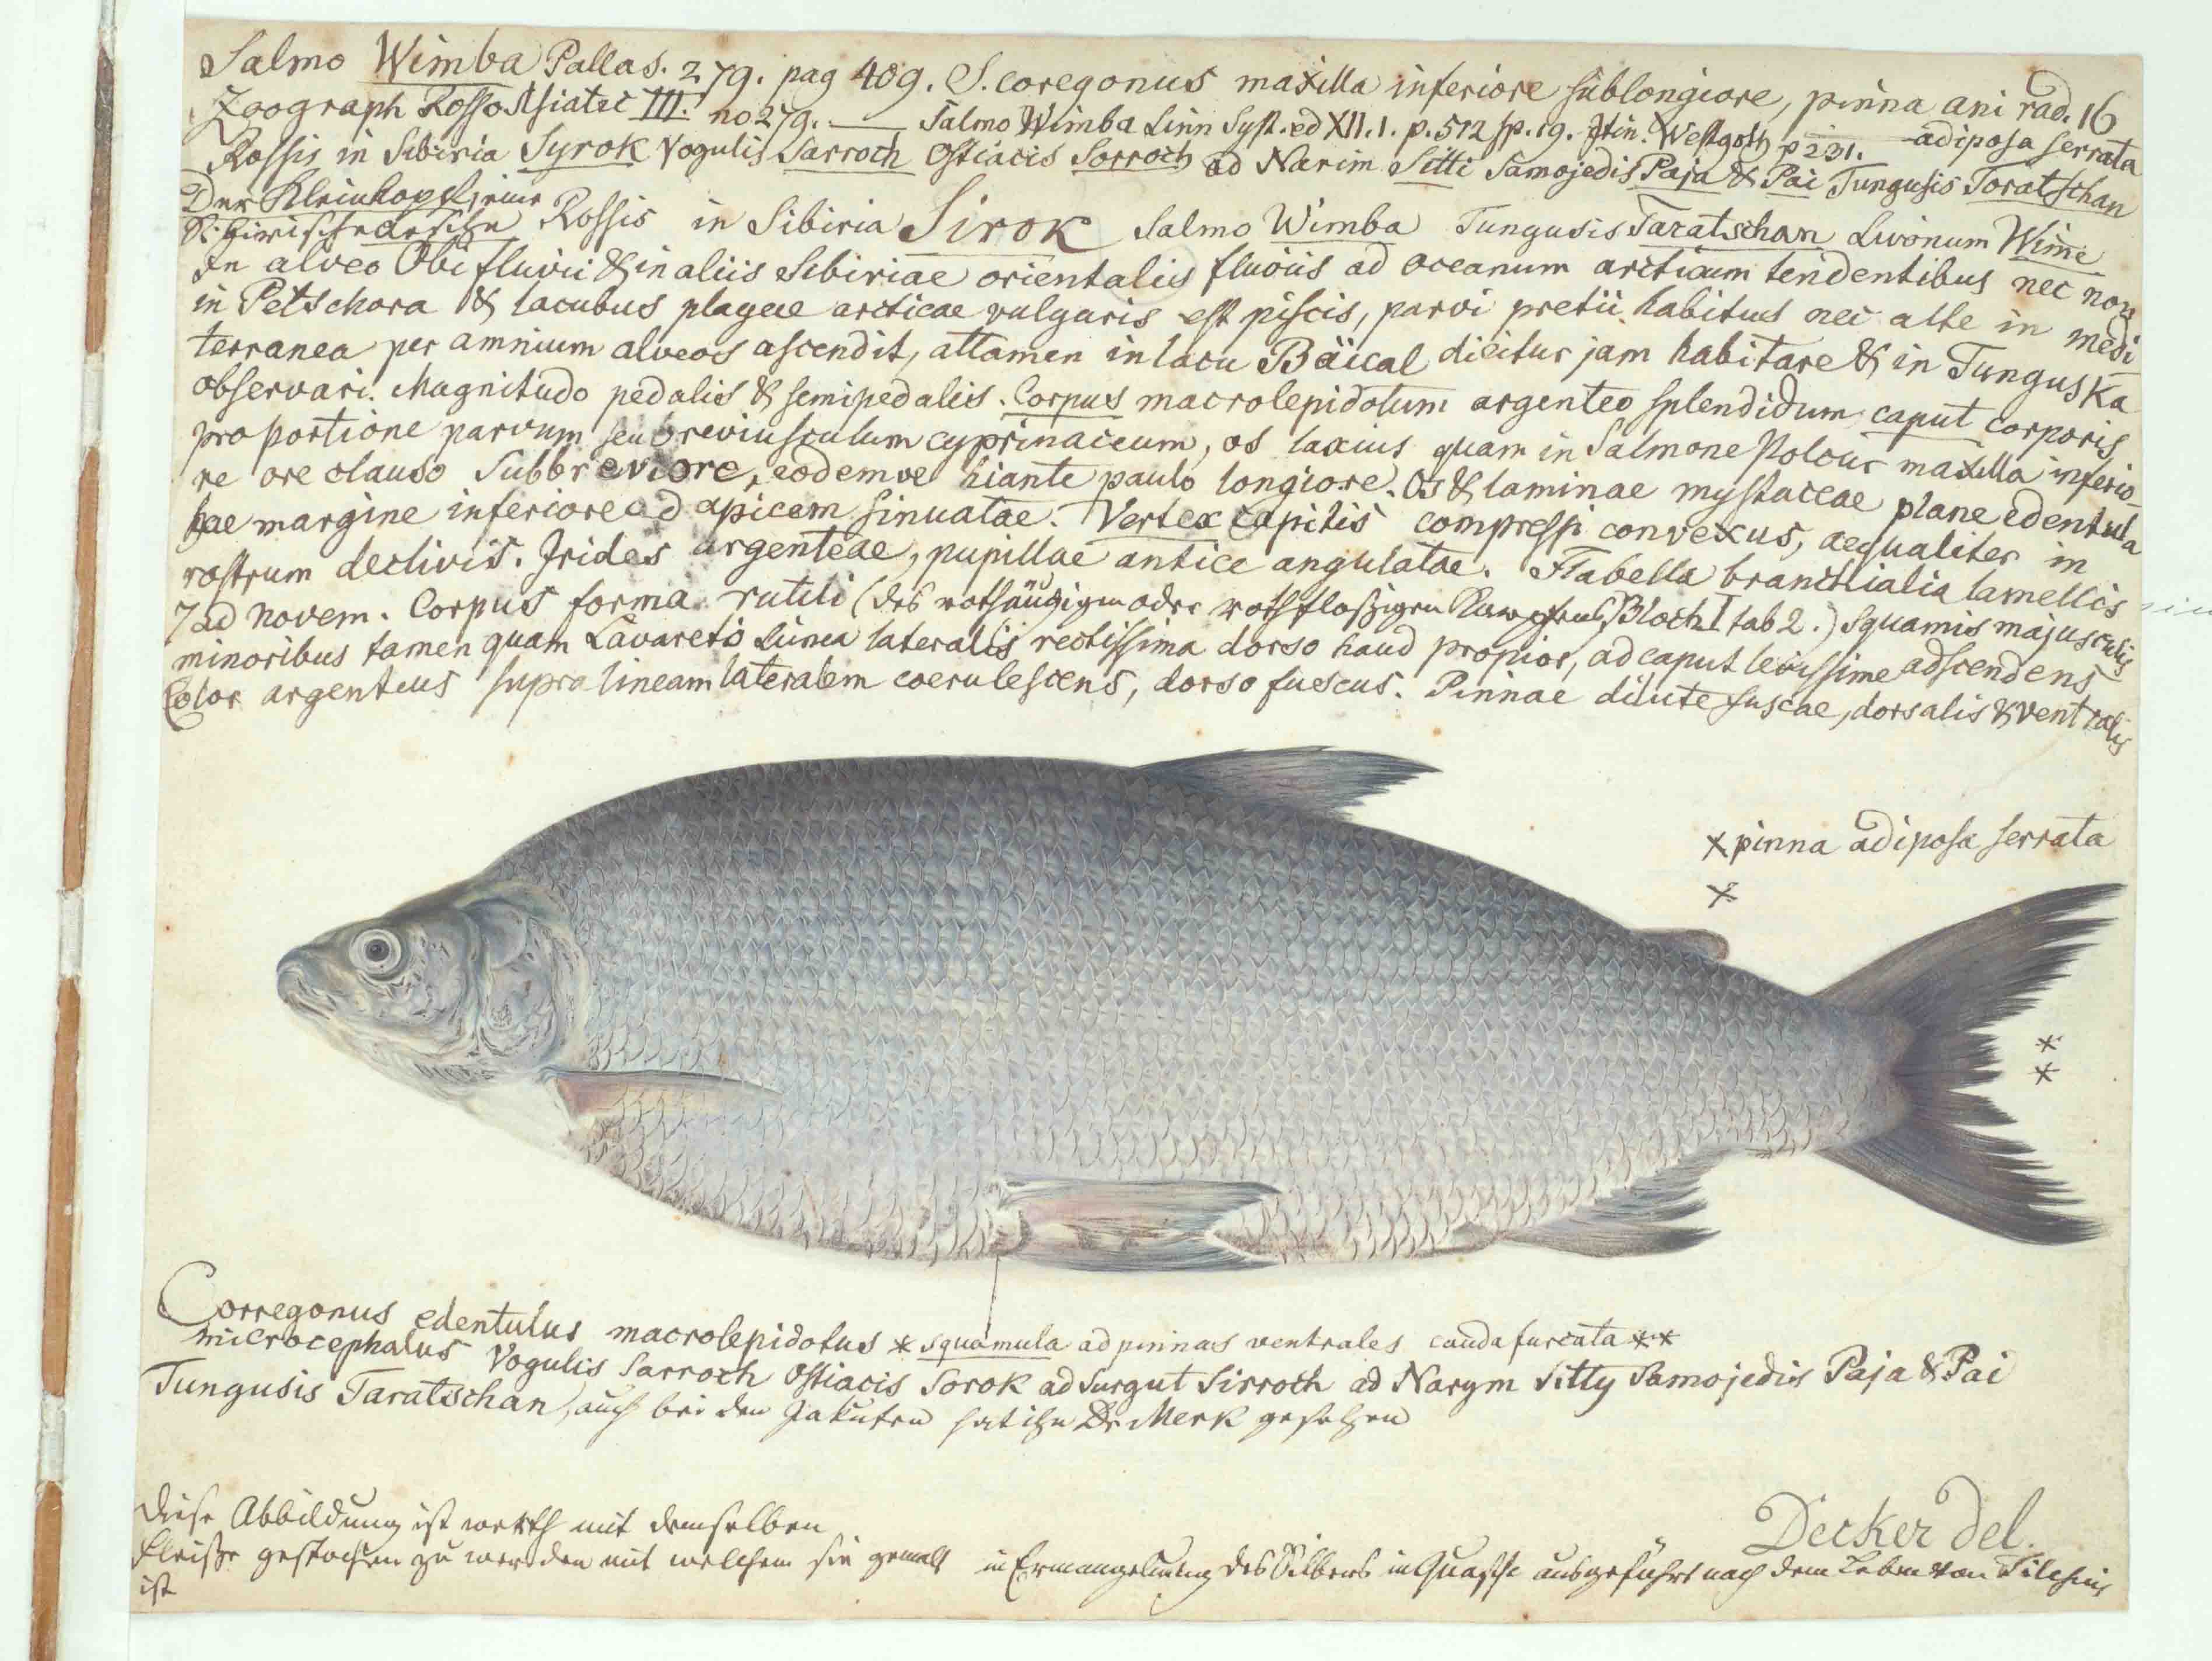 Salmo Wimba Pallas. 279. pag 409. S. coregonus maxilla inferiore sublongiore, pinna ani rad. 16
Zoograph Rosso Asiatic III. no 279. — Salmo Wimba Linn Syst. ed XII. 1. p. 512 sp. 19. Itin. Westgoth p 231. adiposa serrata
Rossis in Sibiria Syrok Vogulis Sarroch Ostiacis Sorroch ad Narim Sitti Samojedis Paja & Pai Tungusis Toratschan
Der Kleinkopf, eine
Rossis in Sibiria Sirok Salmo Wimba Tungusis Taratschan Livonum Wime
In alveo Obi fluvii & in aliis Sibiriae orientalis fluviis ad oceanum arcticum tendentibus nec non
in Petschora & lacubus plagae arcticae vulgaris est piscis, parvi pretii habitus nec alte in medi
terranea per amnium alveos ascendit, attamen in lacu Bäical dicitur jam habitare & in Tunguska
observari. Magnitudo pedalis & semipedalis. Corpus macrolepidotum argenteo splendidum caput corporis
proportione parvum seu breviusculum cyprinaceum, os laxius quam in Salmone Polcur maxilla inferio
re ore clauso subbreviore, eodemve hiante paulo longiore. Os & laminae mystaceae plane edentula
hae margine inferiore ad apicem sinuatae. Vertex capitis compressi convexus, aequaliter in
rostrum declivis. Irides argenteae, pupillae antice angulatae. Flabella branchialia lamellis
7 ad novem. Corpus forma rutili (des rothäugigen oder rothfloszigen Bloch I tab 2.) squamis majusculis
minoribus tamen quam Lavareti Linea lateralis rectissima dorso haud propior, ad caput levissime adscendens
Color argenteus supra lineam lateralem coerulescens, dorso fuscus. Pinnae dilute fuscae, dorsalis & ventralis
* pinna adiposa serrata
*
*
*
Corregonus edentulus macrolepidotus * squamula ad pinnas ventrales cauda furcata **
microcephalus Vogulis Sarroch Ostiacis Sorok ad Surgut Sirroch ad Narym Sitty Samojedis Paja & Pai
Tungusis Taratschan, auch bei den Jakuten hat ihn Dr Merk gesehen
Decker del.
Diese Abbildung ist werth mit demselben
Fleisze gestochen zu werden mit welchem sie gemalt in Ermangelung des Silbers in Guasche ausgeführt nach dem Leben von Tilesius
ist